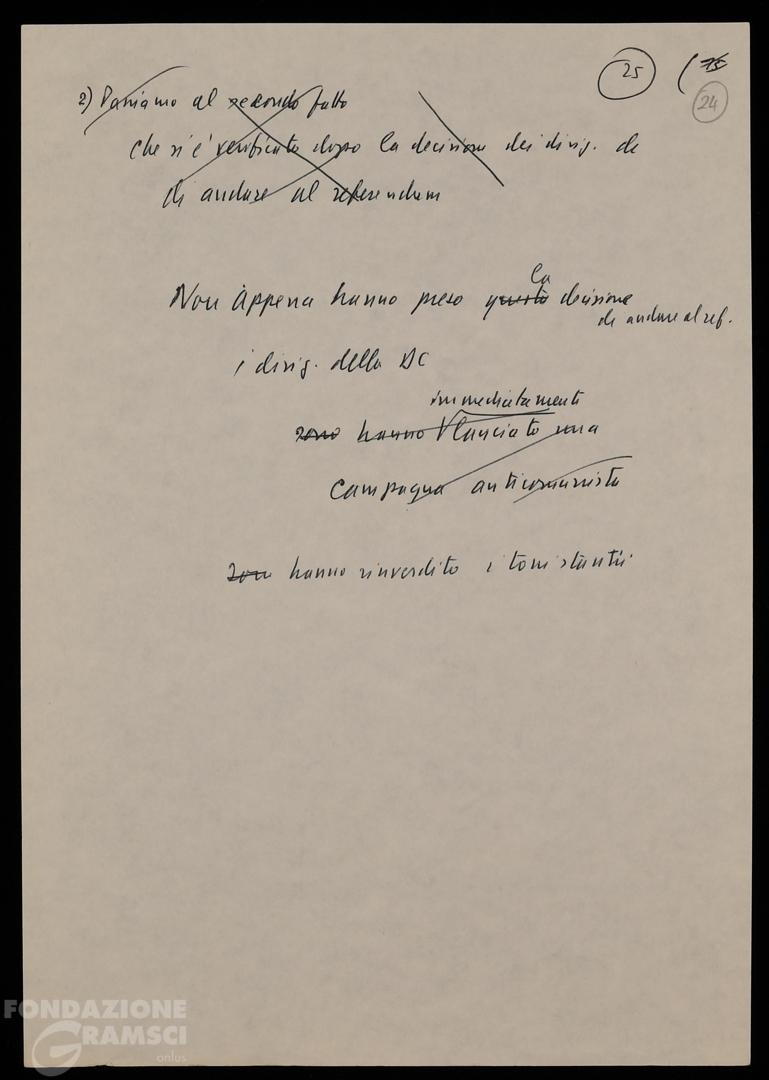 25
(75
24
2) Passiamo al secondo fatto
che si è verificato dopo la decisione dei dirig. dc
di andare al referendum
la
Non appena hanno preso questa decisione
di andare al ref.
i dirig. della DC
immediatamente
sono hanno lanciato una
campagna anticomunista
sono hanno rinverdito i toni stantii
FONDAZIONE
GRAMSCI
onlus